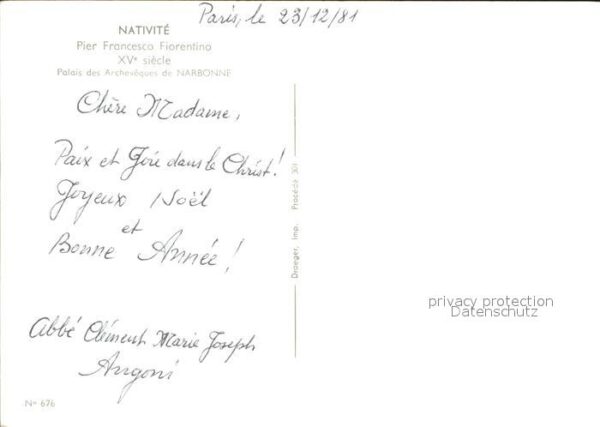 Paris, le 23/12/81
NATIVITÉ
Pier Francesco Fiorentino
XVe siècle
Palais des Archevêques de NARBONNE
Chère Madame,
Paix et Joie dans le Christ!
Joyeux Noël
et
Bonne Année!
Abbé Clément Marie Joseph
Angoni
Draeger, Imp. Procédé 301
privacy protection
Datenschutz
No 676